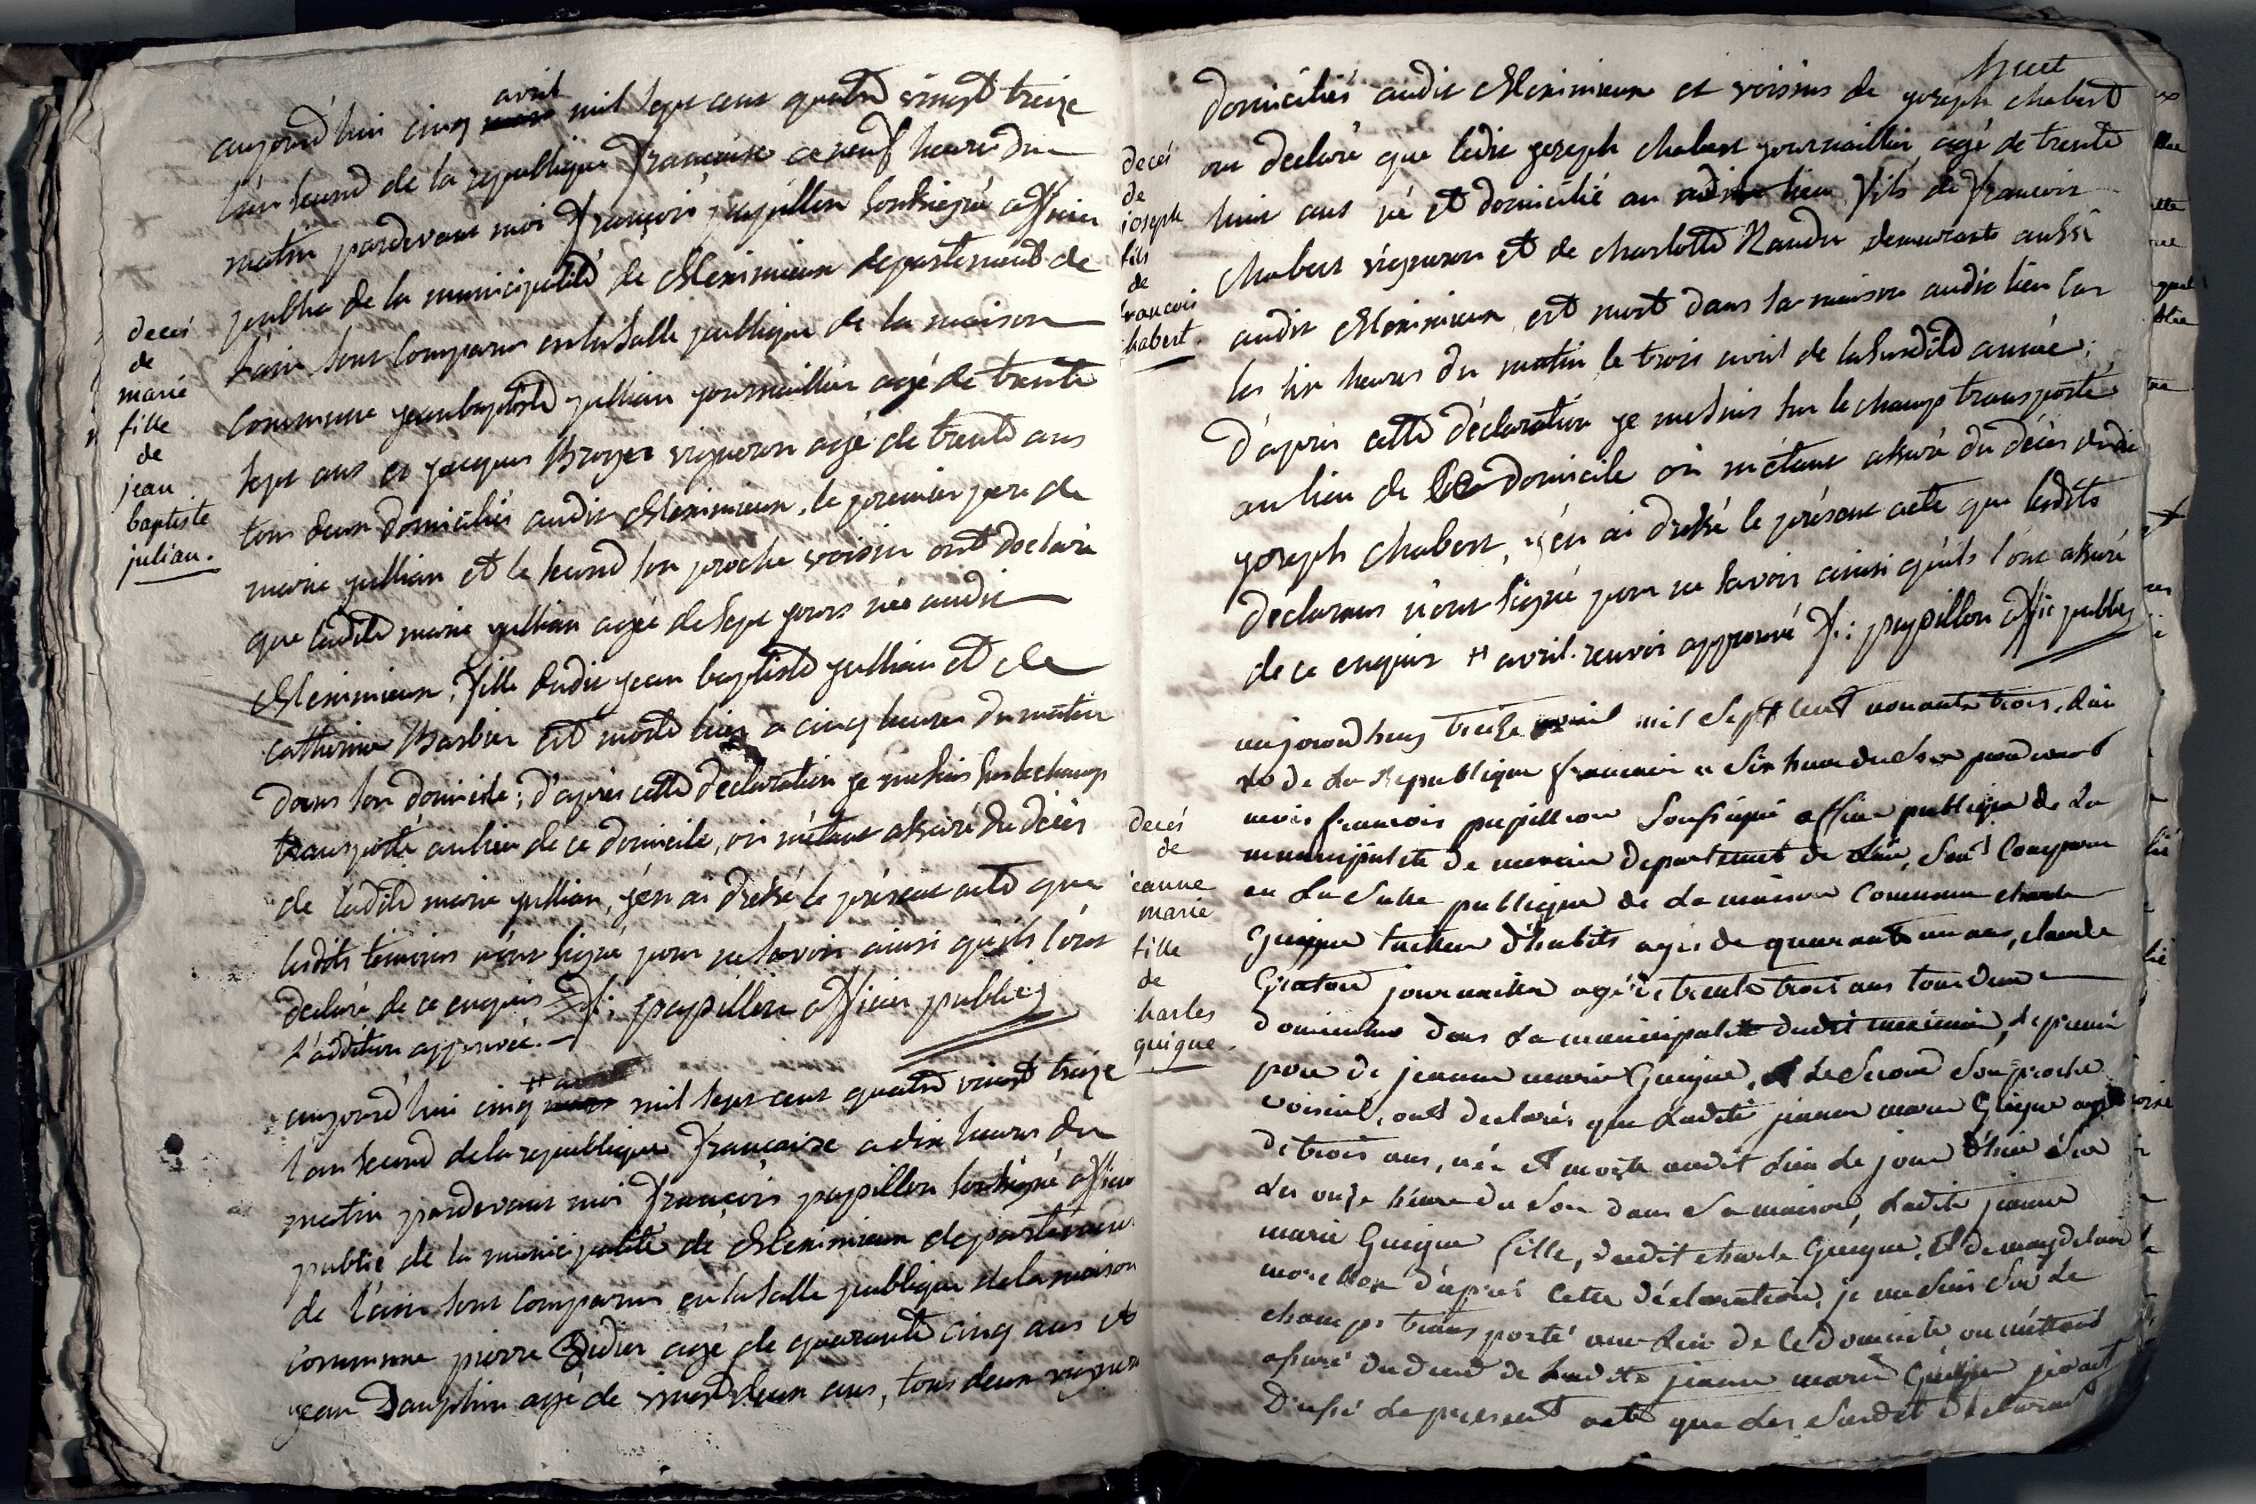 avril
aujourd'hui cinq mil sept cent quatre vingt treize
l'an second de la republique française a neuf heure du
matin pardevant moi françois papillon soussigné officier
public de la municipalité de Meximieux departement de
l'ain sont comparus en la salle publique de la maison
commune jean baptiste jullian journaillier agé de trente
sept ans et jacques Broyer vigneron agé de trente ans
tous deux domiciliés audit Meximieux, le premier pere de
marie jullian et le second son proche voisin ont declaré
que ladite marie jullian agée de sept jours née audit
Meximieux, fille dudit jean baptiste jullian et de
catherine Barbier est morte hier a cinq heures du matin
dans son domicile; d'après cette declaration je me suis sur le champ
transporté au lieu de ce domicile, où m'étant assuré du décès
de ladite marie jullian, j'en ai dressé le présent acte que
lesdits témoins n'ont signé pour ne savoir ainsi qu'ils l'ont
declaré de ce enquis f: papillon officier public
l'addition approuvée.
decès
de
marie
fille
de
jean
baptiste
julian.
aujourd'hui cinq mil sept cent quatre vingt treize
l'an second de la republique française a dix heures du
matin pardevant moi françois papillon soussigné officier
public de la municipalité de Meximieux departement
de l'ain sont comparus en la salle publique de la maison
commune pierre Didier agé de quarante cinq ans et
jean Dauphin agé de vingt deux ans, tous deux vignerons
huit
domiciliés audit Meximieux et voisins de joseph chabert
ont declaré que ledit joseph chabert journaillier agé de trente
huit ans né et domicilié au lieu, fils de françois
chabert vigneron et de charlotte Naudin demeurants aussi
audit Meximieux, est mort dans sa maison audit lieu sur
les six heures du matin le trois avril de la susdite année;
d'après cette déclaration je me suis sur le champ transporté
au lieu de domicile où m'étant assuré du décès dudit
joseph chabert, j'en ai dressé le présent acte que lesdits
declarans n'ont signé pour ne savoir ainsi qu'ils l'ont assuré
de ce enquis # avril. renvoi approuvé f: papillon offic public
decés
de
joseph
fils
de
françois
habert.
aujourdhuy treize avril mil sept cent nonante trois, l'an
de la Republique francaise a six heure du soir pardevant
mois francois papillion soussigné officier publique de la
municipalité de meximieu departement de l'ain, sont comparu
en la salle publique de la maison commune charle
Guigue tailleur d'habits agés de quarante un ans, claude
journaillier agé de trente trois ans tous deux
domiciliés dans la municipalité dudit meximieu, le premier
pere de jeanne marie Guigue, et le second son proche
voisint, ont declarés que ladite jeanne marie Guigue agé
de trois ans, née et morte audit lieu le jour d'hier sur
les onze heure du soir dans sa maison, ladite jeanne
marie Guigue fille, dudit charle Guigue, et de magdelaine
d'après cette déclaration, je me suis sur le
champs transporté au lieu de ce domicile, ou m'éttant
assuré du de ladite jeanne marie Guigue j'en ait
dressé le present acte que les susdit déclarant
decés
de
eanne
marie
fille
de
harles
guigue.